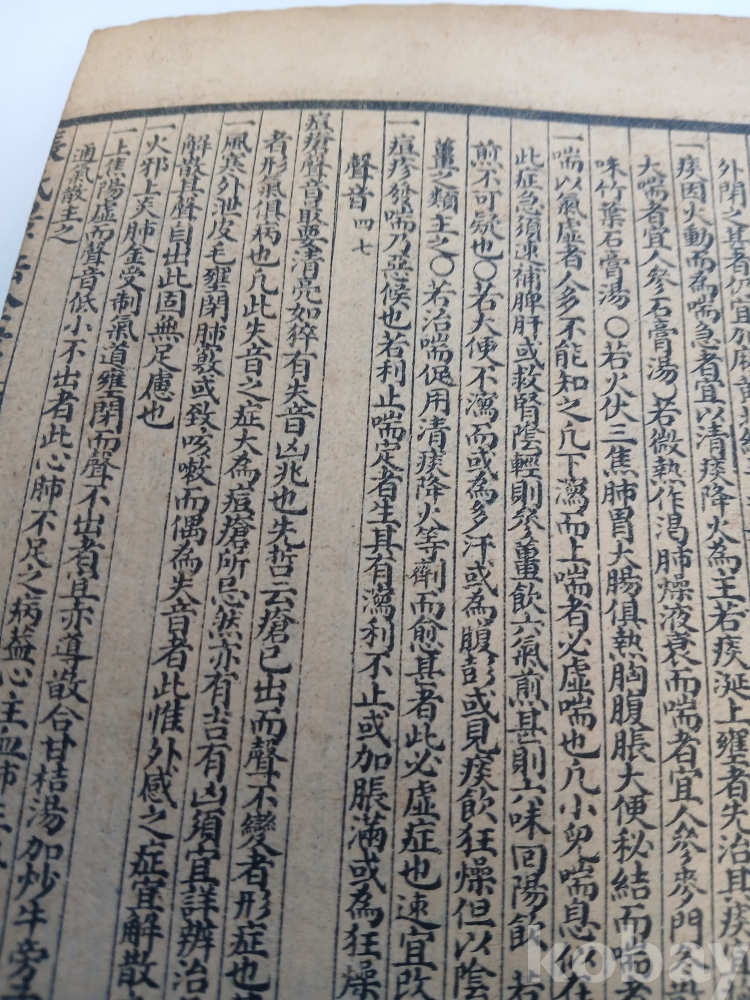 外閉之甚者仍宜加麻黃
一痰因火動而為喘急者宜以清痰降火為主若痰涎上壅者先治其痰宜
大喘者宜人參石膏湯若微熱作渴肺燥液衰而喘者宜人參麥門冬
味竹葉石膏湯○若火伏三焦肺胃大腸俱熱胸腹脹大便秘結而喘者
一喘以氣虛者人多不能知之凡下瀉而上喘者必虛喘也凡小兒喘息似在
此症急須速補脾肝或救腎陰輕則參薑飲六氣煎甚則六味回陽飲若
煎不可疑也○若大便不瀉而或為多汗或為腹彭或見痰飲狂燥但以陰
薑之類主之○若治喘促用清痰降火等劑而愈甚者此必虛症也速宜改
一痘疹發喘乃惡候也若利止喘定者生其有瀉利不止或加脹滿或為狂燥
聲音 四七
痘瘡聲音最要清亮如猝有失音凶兆也先哲云瘡已出而聲不變者形症也
者形氣俱病也凡此失音之症大為痘瘡所忌然亦有吉有凶須宜詳辨治
一風寒外泄皮毛壅閉肺竅或致咳嗽而偶為失音者此惟外感之症宜解散
解散其聲自出此固無足慮也
一火邪上炎肺金受制氣道壅閉而聲不出者宜亦導散合甘桔湯加炒牛旁
一上焦陽虛而聲音低小不出者此心肺不足之病蓋心主血肺主氣
通氣散主之